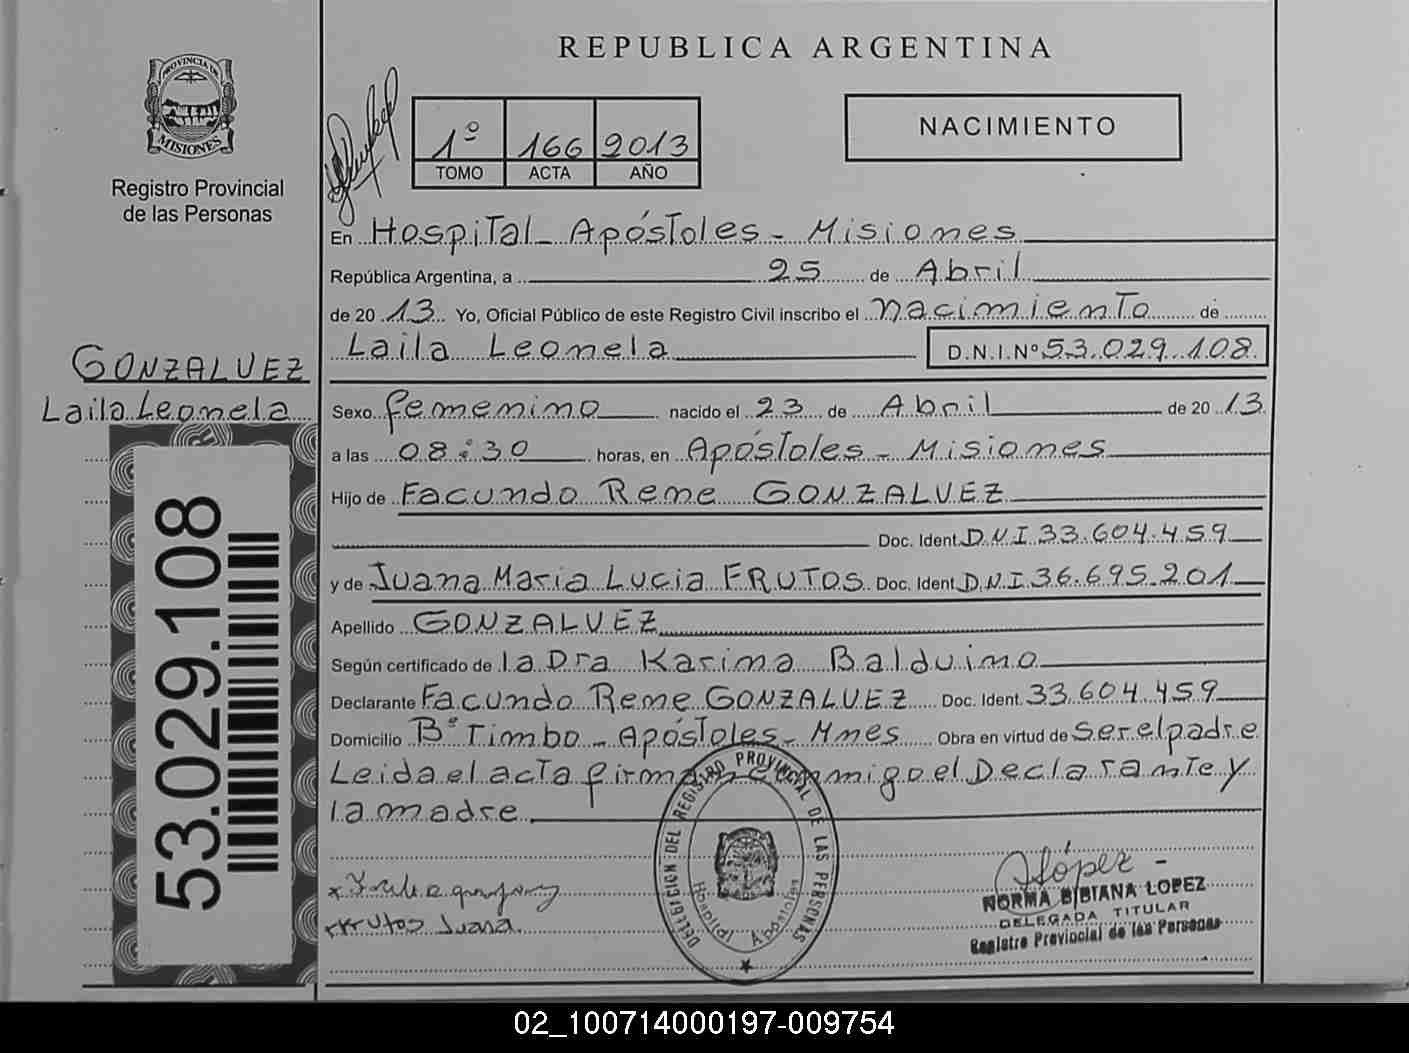 REPUBLICA ARGENTINA
PROVINCIA DE
MISIONES
Registro Provincial
de las Personas
1º 166 2013
TOMO ACTA AÑO
NACIMIENTO
En Hospital Apóstoles - Misiones
República Argentina, a 25 de Abril
de 2013 Yo, Oficial Público de este Registro Civil inscribo el nacimiento de
Laila Leonela D.N.I.Nº 53.029.108
GONZALVEZ
Laila Leonela
Sexo femenino nacido el 23 de Abril de 2013
a las 08:30 horas, en Apóstoles - Misiones
Hijo de Facundo Rene GONZALVEZ
Doc. Ident. D.N.I 33.604.459
y de Juana Maria Lucia FRUTOS Doc. Ident. D.N.I 36.695.201
Apellido GONZALVEZ
Según certificado de la Dra Karina Balduino
Declarante Facundo Rene GONZALVEZ Doc. Ident. 33.604.459
Domicilio Bº Timbo - Apóstoles - Mnes Obra en virtud de ser el padre
Leida el acta firman conmigo el Declarante y
la madre.
53.029.108
DELEGACION DEL REGISTRO PROVINCIAL DE LAS PERSONAS
Hospital Apostoles
Frutos Juana.
López -
NORMA BIBIANA LOPEZ
DELEGADA TITULAR
Registro Provincial de las Personas
02_100714000197-009754